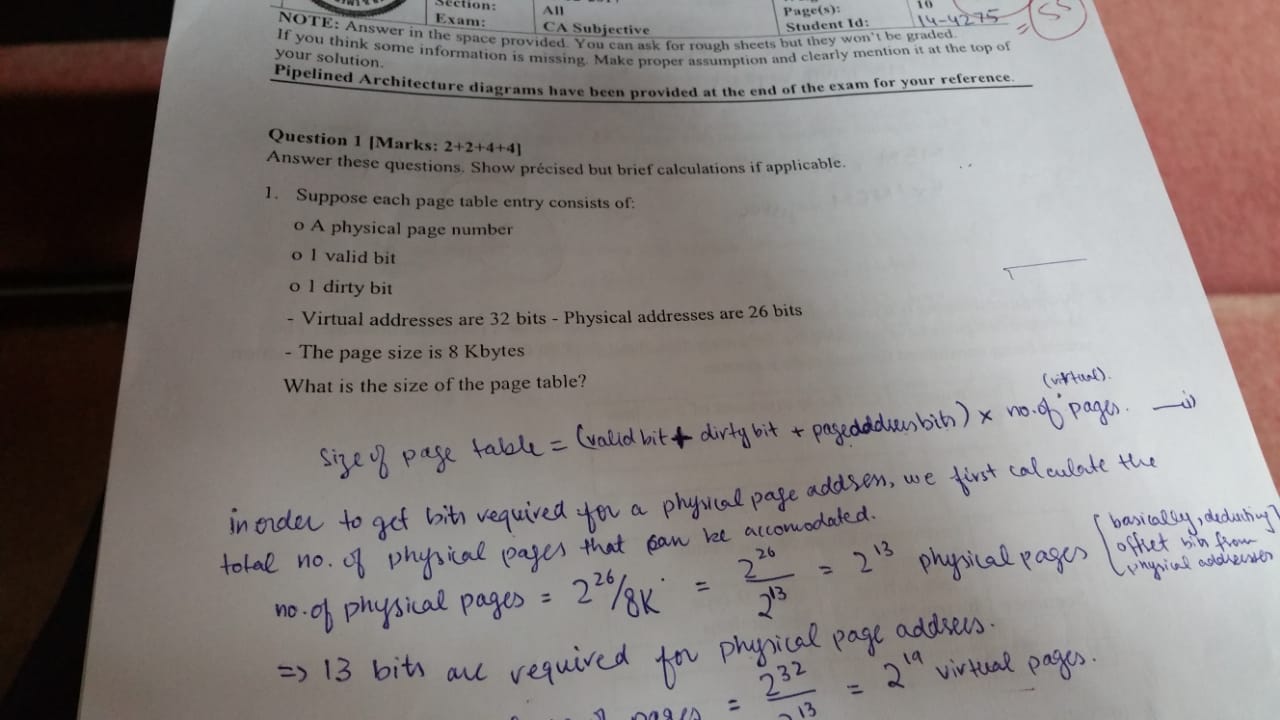 Section:
All
Page(s):
10
Exam:
CA Subjective
Student Id:
14-4275
55
NOTE: Answer in the space provided. You can ask for rough sheets but they won't be graded.
If you think some information is missing. Make proper assumption and clearly mention it at the top of
your solution.
Pipelined Architecture diagrams have been provided at the end of the exam for your reference.
Question 1 [Marks: 2+2+4+4]
Answer these questions. Show précised but brief calculations if applicable.
1. Suppose each page table entry consists of:
o A physical page number
o 1 valid bit
o 1 dirty bit
- Virtual addresses are 32 bits - Physical addresses are 26 bits
- The page size is 8 Kbytes
What is the size of the page table?
(virtual).
size of page table = (valid bit + dirty bit + page address bits) × no. of pages. —i)
in order to get bits required for a physical page address, we first calculate the
total no. of physical pages that can be accomodated.
no. of physical pages = 2^26/8K = 2^26/2^13 = 2^13 physical pages
[basically, deducting
offset bits from
physical addresses]
=> 13 bits are required for physical page address.
pages = 2^32/2^13 = 2^19 virtual pages.